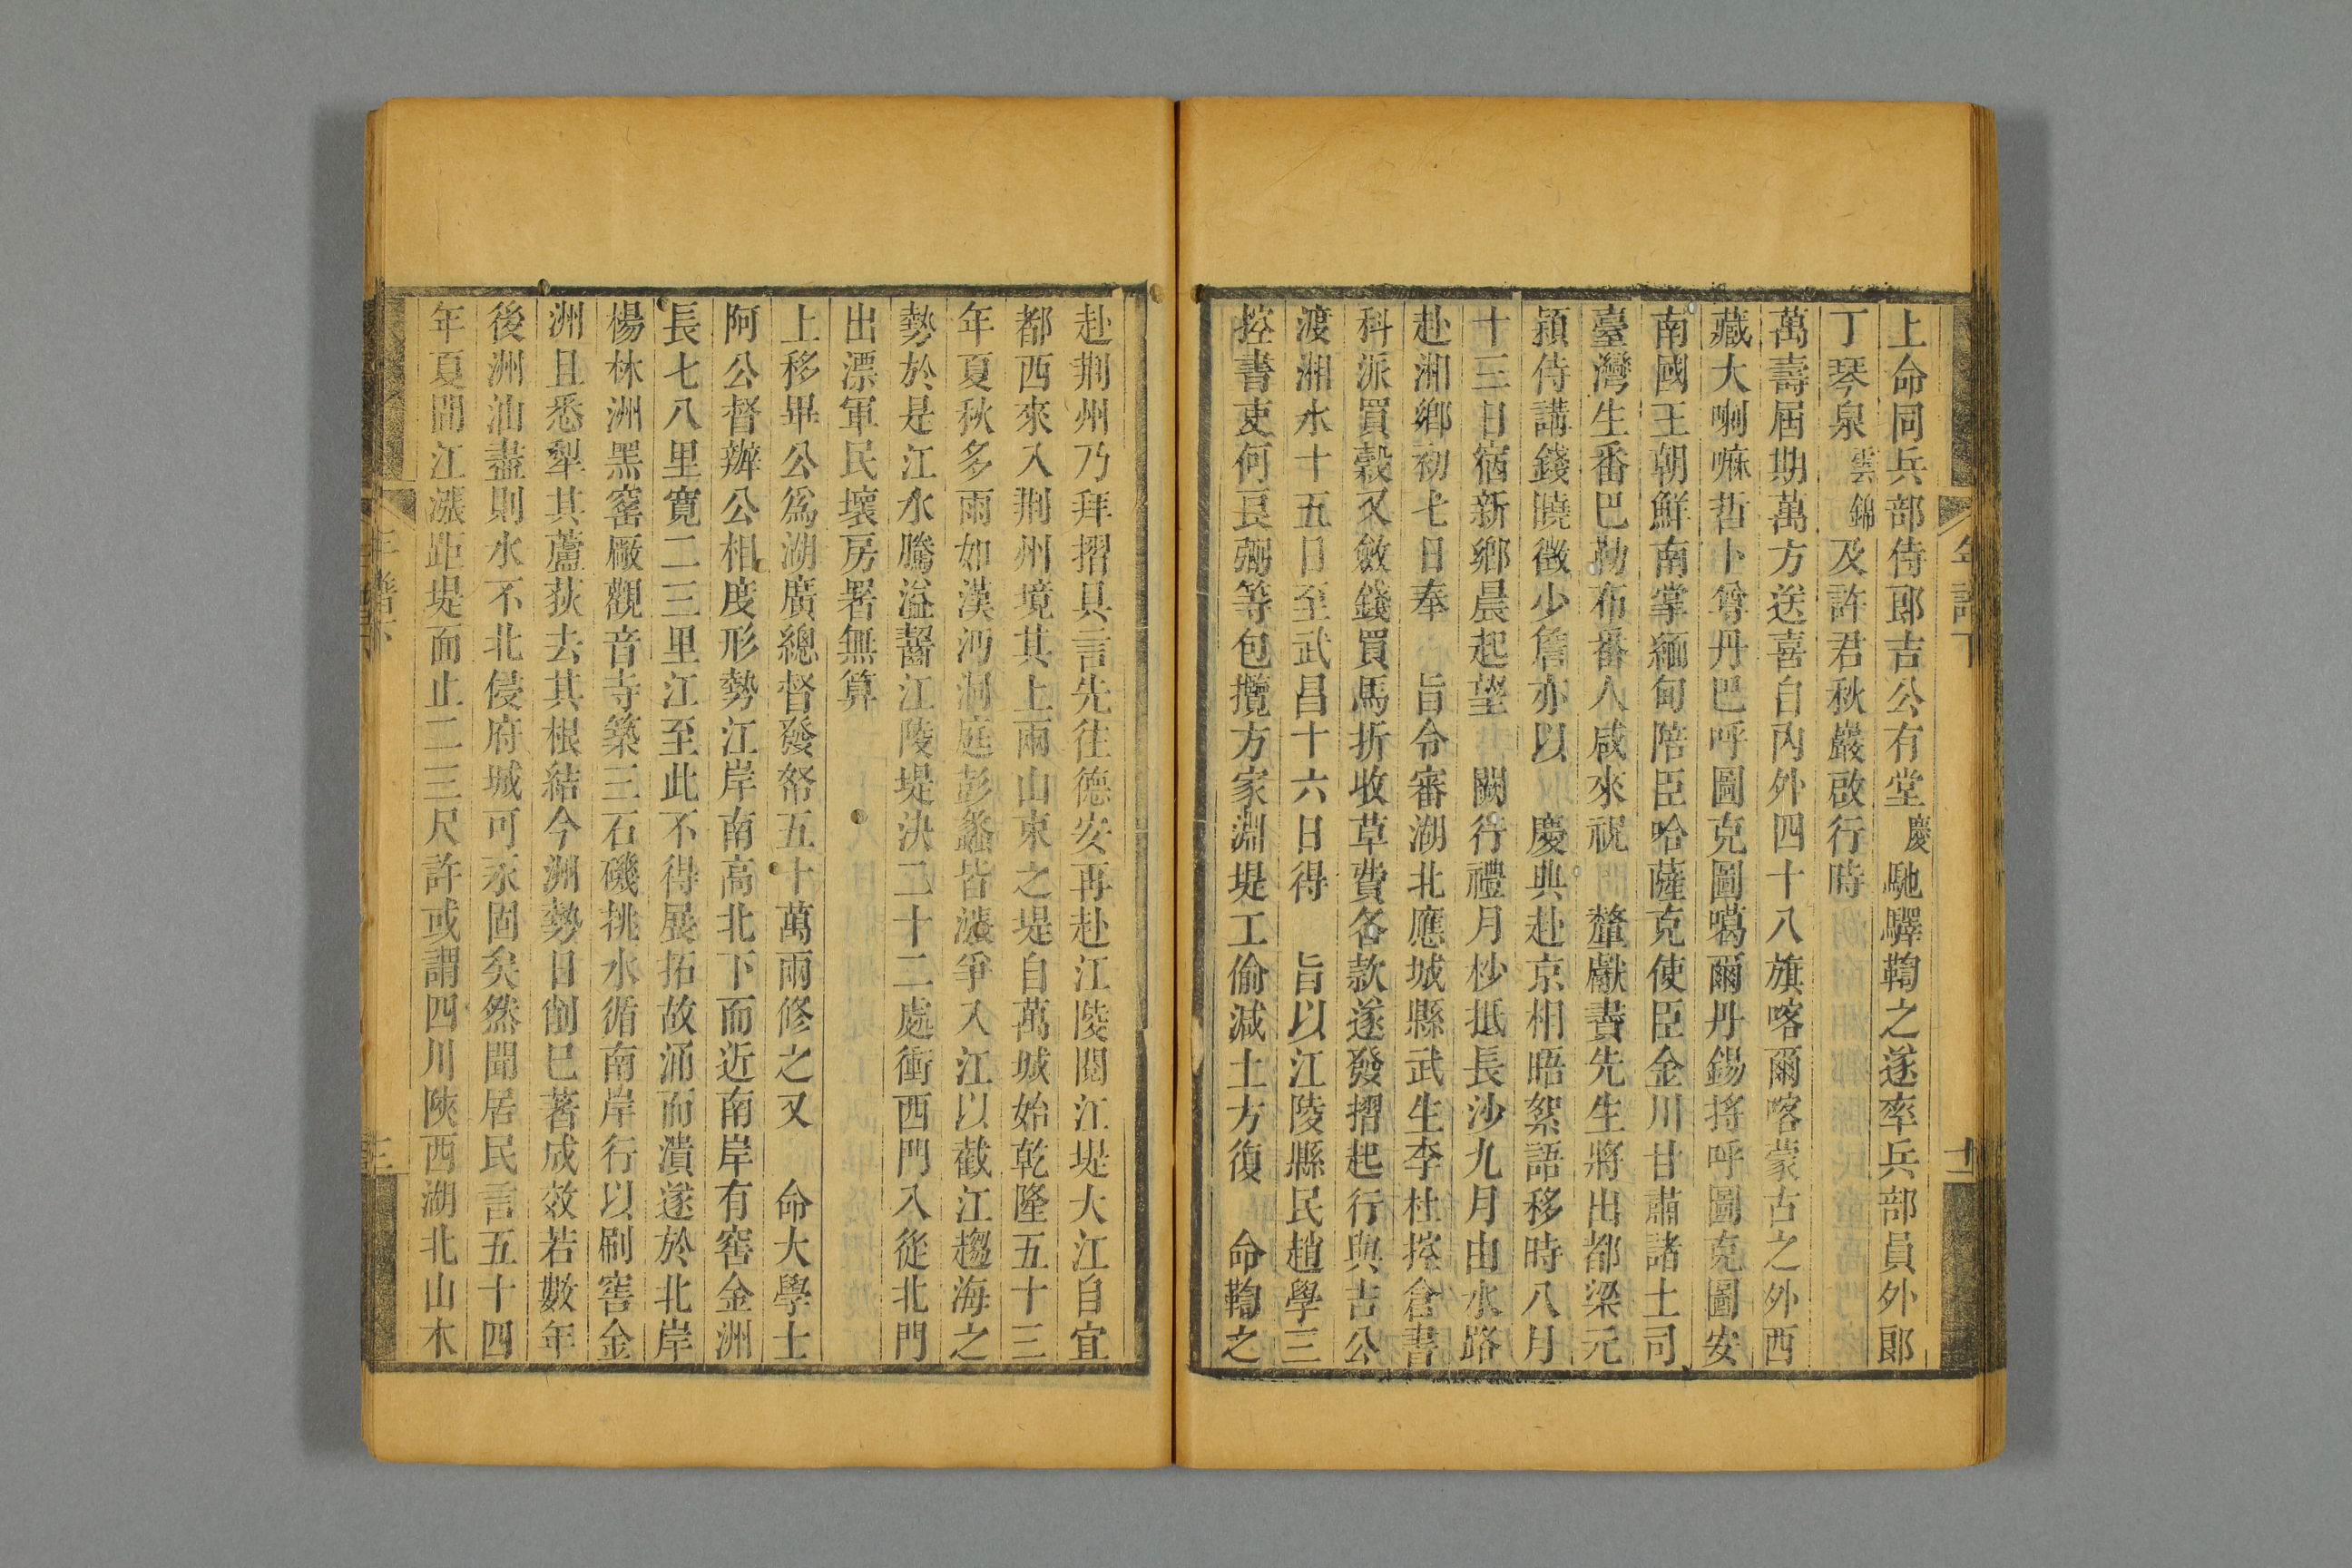 上命同兵部侍郎吉公有堂慶馳驛鞫之遂率兵部員外郎
丁琴泉雲錦及許君秋巖啟行時
萬壽屆期萬方送喜自內外四十八旗喀爾喀蒙古之外西
藏大喇嘛哲卜尊丹巴呼圖克圖噶爾丹錫捋呼圖克圖安
南國王朝鮮南掌緬甸陪臣哈薩克使臣金川甘肅諸土司
臺灣生番巴勒布番人咸來祝 釐獻賮先生將出都梁元
穎侍講錢曉徵少詹亦以 慶典赴京相晤絮語移時八月
十三日宿新鄉晨起望 闕行禮月杪抵長沙九月由水路
赴湘鄉初七日奉 旨令審湖北應城縣武生李杜控倉書
科派買穀又斂錢買馬折收草費各款遂發摺起行與吉公
渡湘水十五日至武昌十六日得 旨以江陵縣民趙學三
控書吏何良弼等包攬方家淵堤工偷減土方復 命鞫之
年譜下
十二
赴荆州乃拜摺具言先往德安再赴江陵閱江堤大江自宜
都西來入荆州境其上兩山束之堤自萬城始乾隆五十三
年夏秋多雨如漢沔洞庭彭蠡皆漲爭入江以截江趨海之
勢於是江水騰溢齧江陵堤決二十二處衝西門入從北門
出漂軍民壞房署無算
上移畢公爲湖廣總督發帑五十萬兩修之又 命大學士
阿公督辦公相度形勢江岸南高北下而近南岸有窖金洲
長七八里寬二三里江至此不得展拓故涌而潰遂於北岸
楊林洲黑窰廠觀音寺築三石磯挑水循南岸行以刷窖金
洲且悉犁其蘆荻去其根結今洲勢日削已著成效若數年
後洲汕盡則水不北侵府城可永固矣然聞居民言五十四
年夏間江漲距堤面止二三尺許或謂四川陝西湖北山木
年譜下